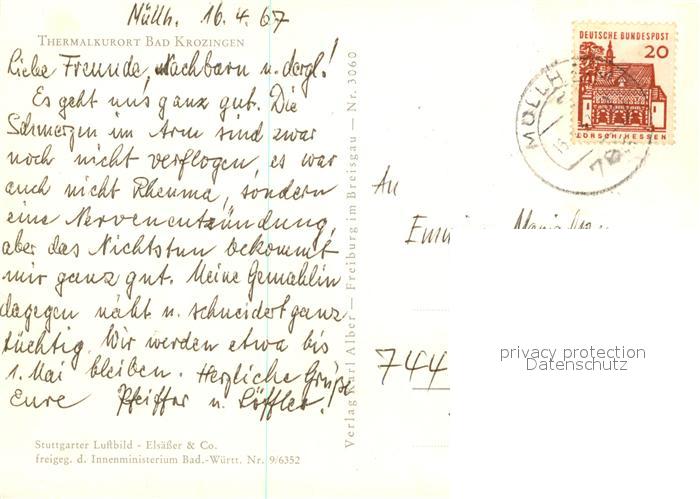 Müllh. 16.4.67
THERMALKURORT BAD KROZINGEN
Liebe Freunde, Nachbarn u. dergl.!
Es geht uns ganz gut. Die
Schmerzen im Arm sind zwar
noch nicht verflogen, es war
auch nicht Rheuma, sondern
eine Nervenentzündung,
aber das Nichtstun bekommt
mir ganz gut. Meine Gemahlin
dagegen näht u. schneidert ganz
tüchtig. Wir werden etwa bis
1. Mai bleiben. Herzliche Grüße
Eure Pfeiffer u. Löffler!
Stuttgarter Luftbild - Elsäßer & Co.
freigeg. d. Innenministerium Bad.-Württ. Nr. 9/6352
Verlag Karl Alber — Freiburg im Breisgau — Nr. 3060
DEUTSCHE BUNDESPOST
20
LORSCH/HESSEN
MÜLLH
An
744
privacy protection
Datenschutz